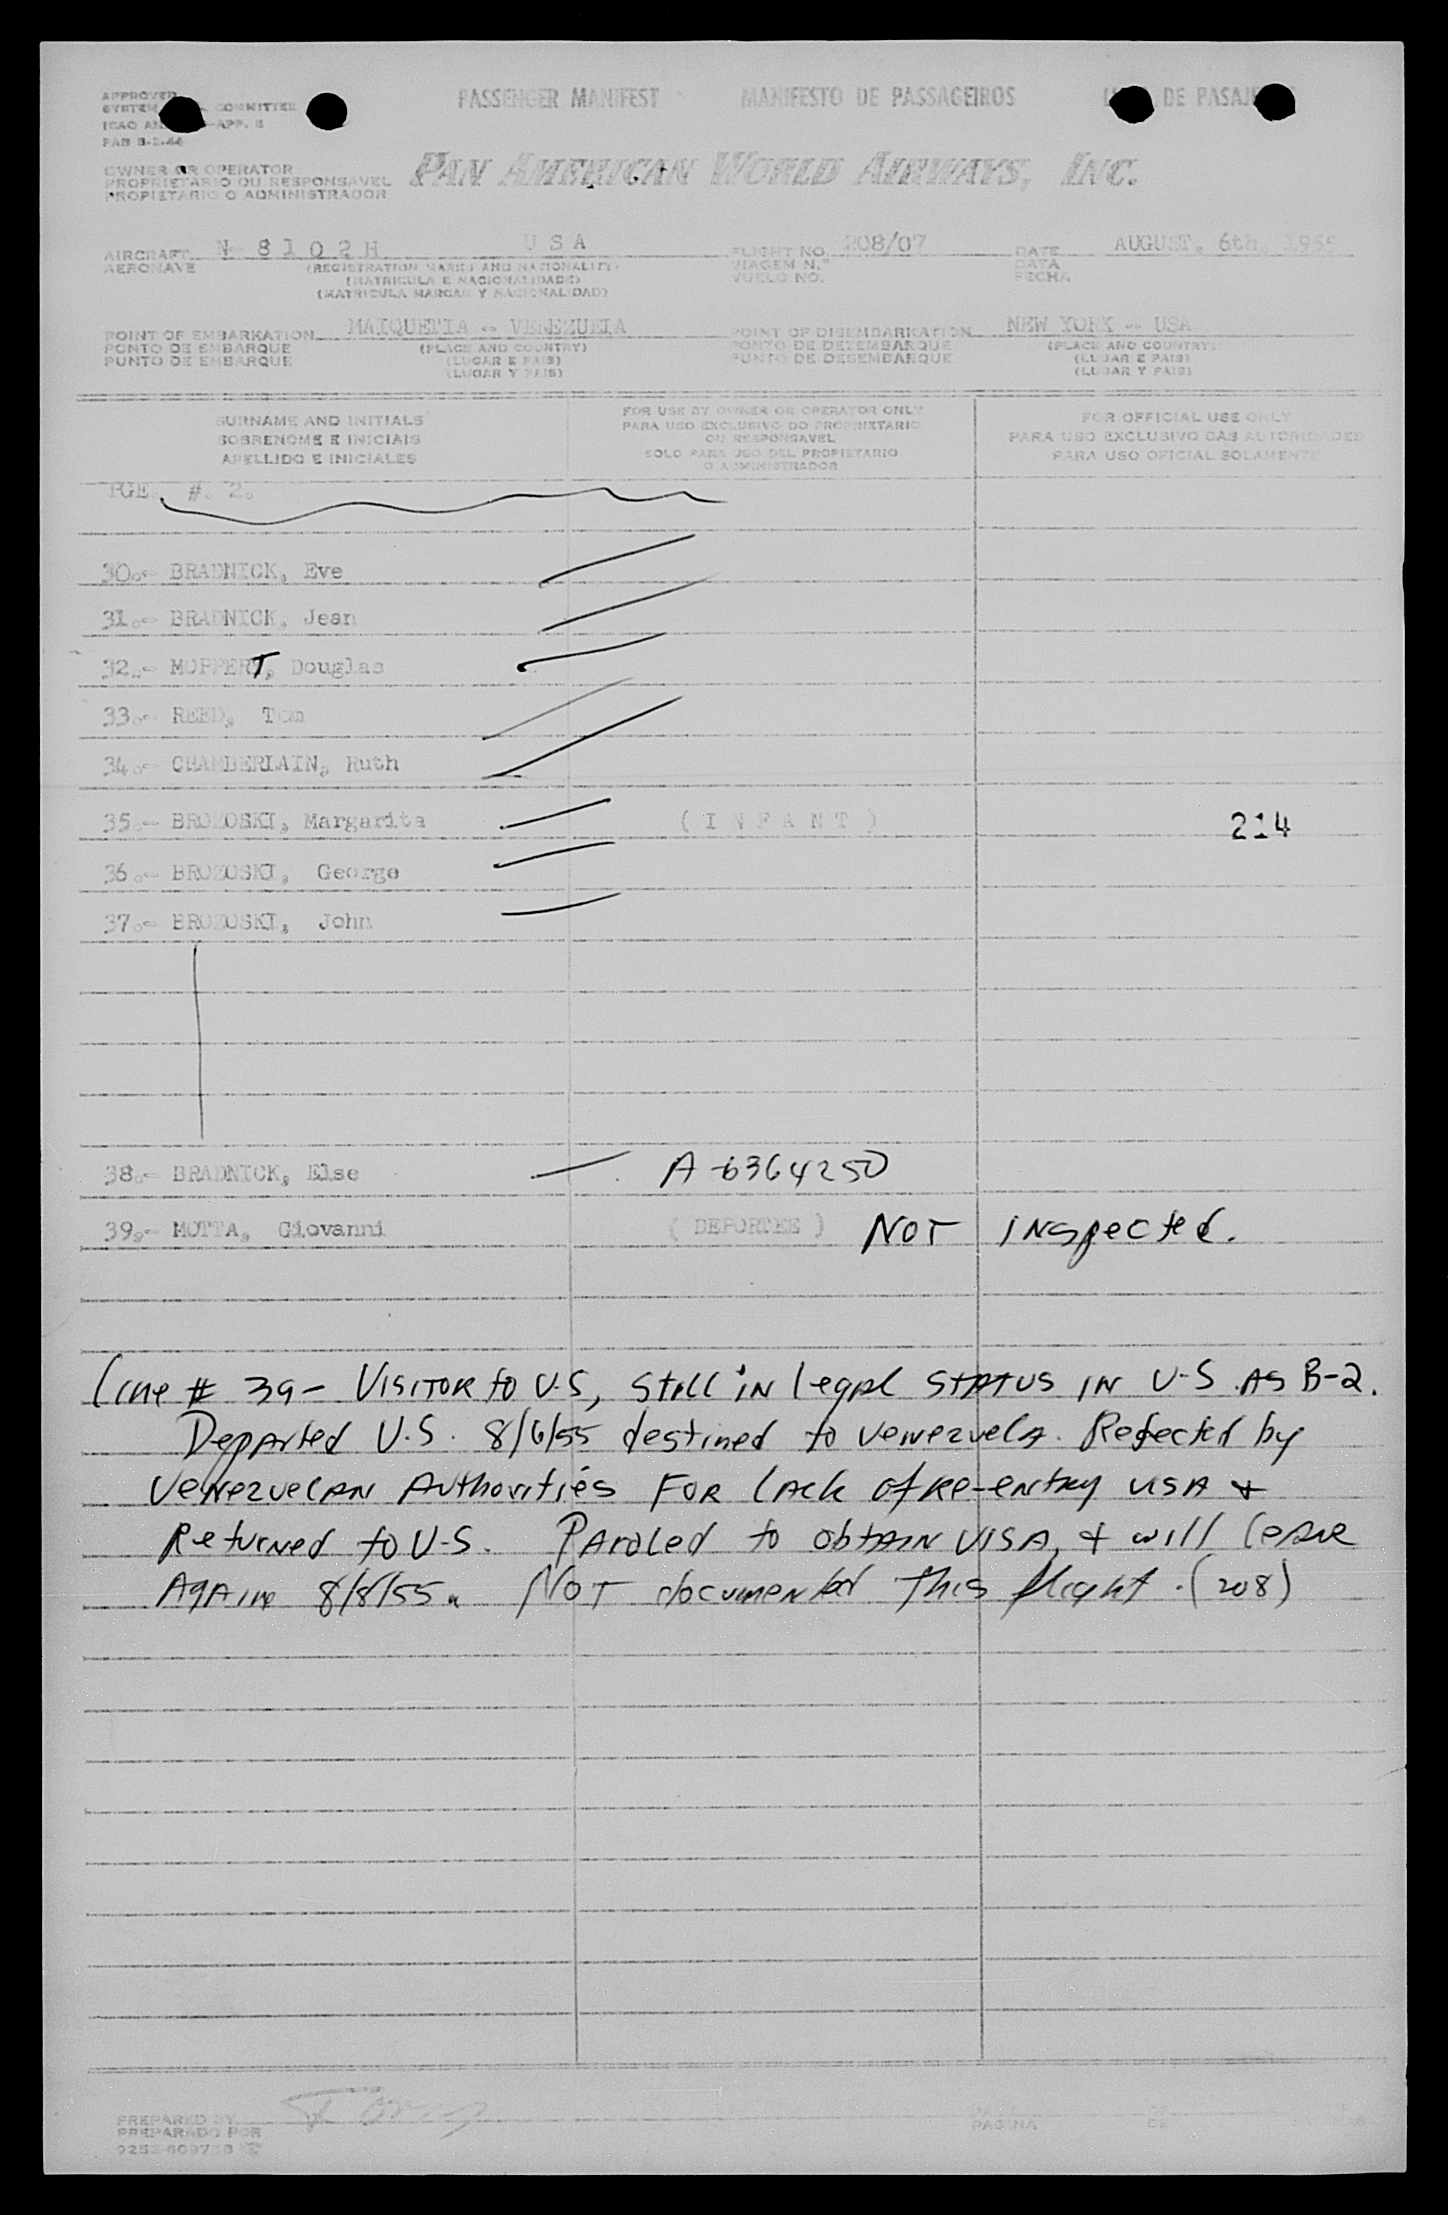 PASSENGER MANIFEST MANIFESTO DE PASSAGEIROS DE
APPROVED
SYSTEM COMMITTEE
ICAO APP. 8
OWNER OR OPERATOR
PROPRIETARIO OU RESPONSAVEL
PROPIETARIO O ADMINISTRADOR
PAN AMERICAN WORLD AIRWAYS, INC.
AIRCRAFT N- 8102H USA FLIGHT NO. 208/07 DATE AUGUST, 6th, 1955
AERONAVE (REGISTRATION MARKS AND NATIONALITY) VIAGEM N.º DATA
(MATRICULA E NACIONALIDADE) VUELO NO. FECHA
(MATRICULA MARCAS Y NACIONALIDAD)
POINT OF EMBARKATION MAIQUETIA -- VENEZUELA POINT OF DISEMBARKATION NEW YORK -- USA
PONTO DE EMBARQUE (PLACE AND COUNTRY) PONTO DE DESEMBARQUE (PLACE AND COUNTRY)
PUNTO DE EMBARQUE (LUGAR E PAIS) PUNTO DE DESEMBARQUE (LUGAR E PAIS)
(LUGAR Y PAIS) (LUGAR Y PAIS)
SURNAME AND INITIALS FOR USE BY OWNER OR OPERATOR ONLY FOR OFFICIAL USE ONLY
SOBRENOME E INICIAIS PARA USO EXCLUSIVO DO PROPRIETARIO PARA USO EXCLUSIVO DAS AUTORIDADES
OU RESPONSAVEL
APELLIDO E INICIALES SOLO PARA USO DEL PROPIETARIO PARA USO OFICIAL SOLAMENTE
O ADMINISTRADOR
PGE. #. 2.
30.- BRADNICK, Eve
31.- BRADNICK, Jean
32.- MOPPERT, Douglas
33.- REED, Tom
34.- CHAMBERLAIN, Ruth
35.- BROZOSKI, Margarita ( I N F A N T ) 214
36.- BROZOSKI, George
37.- BROZOSKI, John
38.- BRADNICK, Else A-6364250
39.- MOTTA, Giovanni ( DEPORTEE ) NOT inspected.
Line # 39 - Visitor to U.S, still in legal status in U-S as B-2.
Departed U.S. 8/6/55 destined to Venezuela. Rejected by
Venezuelan Authorities for lack of re-entry visa &
Returned to U-S. Paroled to obtain visa, & will leave
Again 8/8/55. NOT documented this flight. (208)
PREPARED BY
PREPARADO POR PAGINA DE